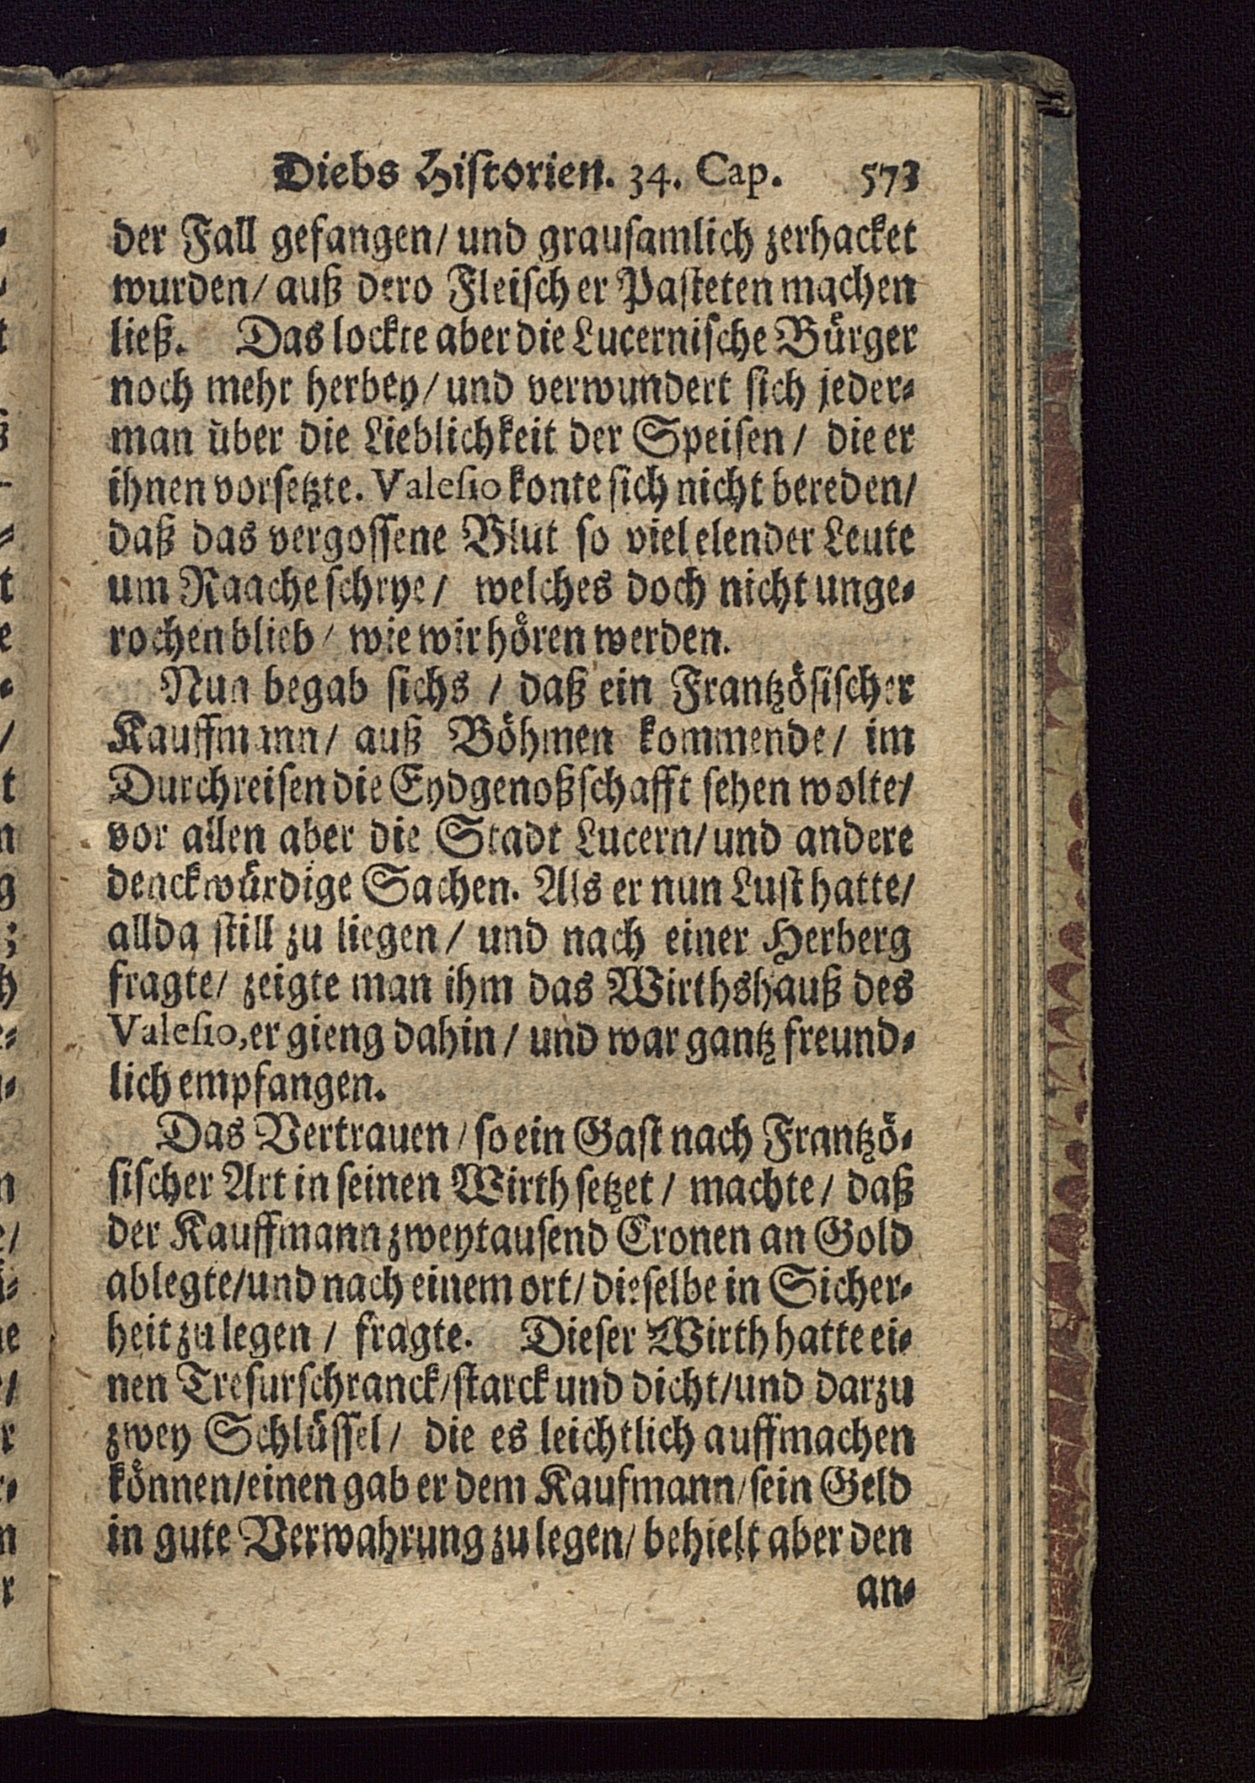 Diebs Historien. 34. Cap. 573
der Fall gefangen/ und grausamlich zerhacket
wurden/ auß dero Fleisch er Pasteten machen
ließ. Das lockte aber die Lucernische Bürger
noch mehr herbey/ und verwundert sich jeder-
man über die Lieblichkeit der Speisen/ die er
ihnen vorsetzte. Valesio konte sich nicht bereden/
daß das vergossene Blut so viel elender Leute
um Raache schrye/ welches doch nicht unge-
rochen blieb/ wie wir hören werden.
Nun begab sichs / daß ein Frantzösischer
Kauffmann/ auß Böhmen kommende/ im
Durchreisen die Eydgenoßschafft sehen wolte/
vor allen aber die Stadt Lucern/ und andere
denckwürdige Sachen. Als er nun Lust hatte/
allda still zu liegen/ und nach einer Herberg
fragte/ zeigte man ihm das Wirthshauß des
Valesio, er gieng dahin/ und war gantz freund-
lich empfangen.
Das Vertrauen/ so ein Gast nach Frantzö-
sischer Art in seinen Wirth setzet/ machte/ daß
der Kauffmann zweytausend Cronen an Gold
ablegte/ und nach einem ort/ dieselbe in Sicher-
heit zu legen/ fragte. Dieser Wirth hatte ei-
nen Tresurschranck/ starck und dicht/ und darzu
zwey Schlüssel/ die es leichtlich auffmachen
können/ einen gab er dem Kaufmann/ sein Geld
in gute Verwahrung zu legen/ behielt aber den
an-